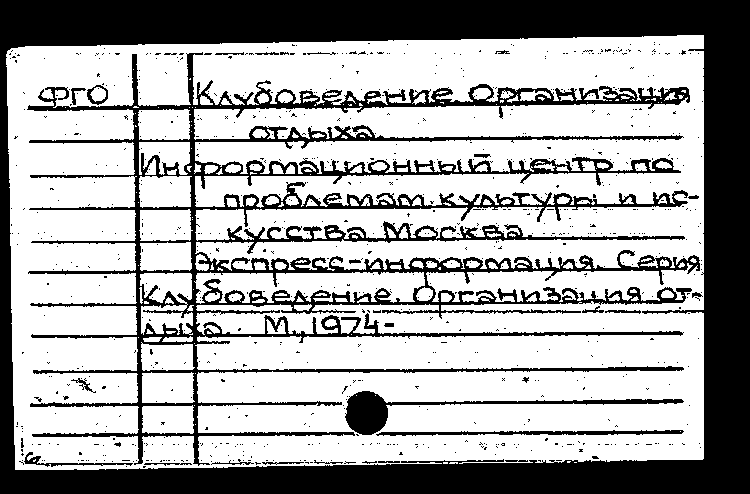 ФГО Клубоведение. Организация
отдыха.
Информационный центр по
проблемам культуры и ис-
кусства Москва.
Экспресс-информация. Серия
Клубоведение. Организация от-
дыха. М., 1974-